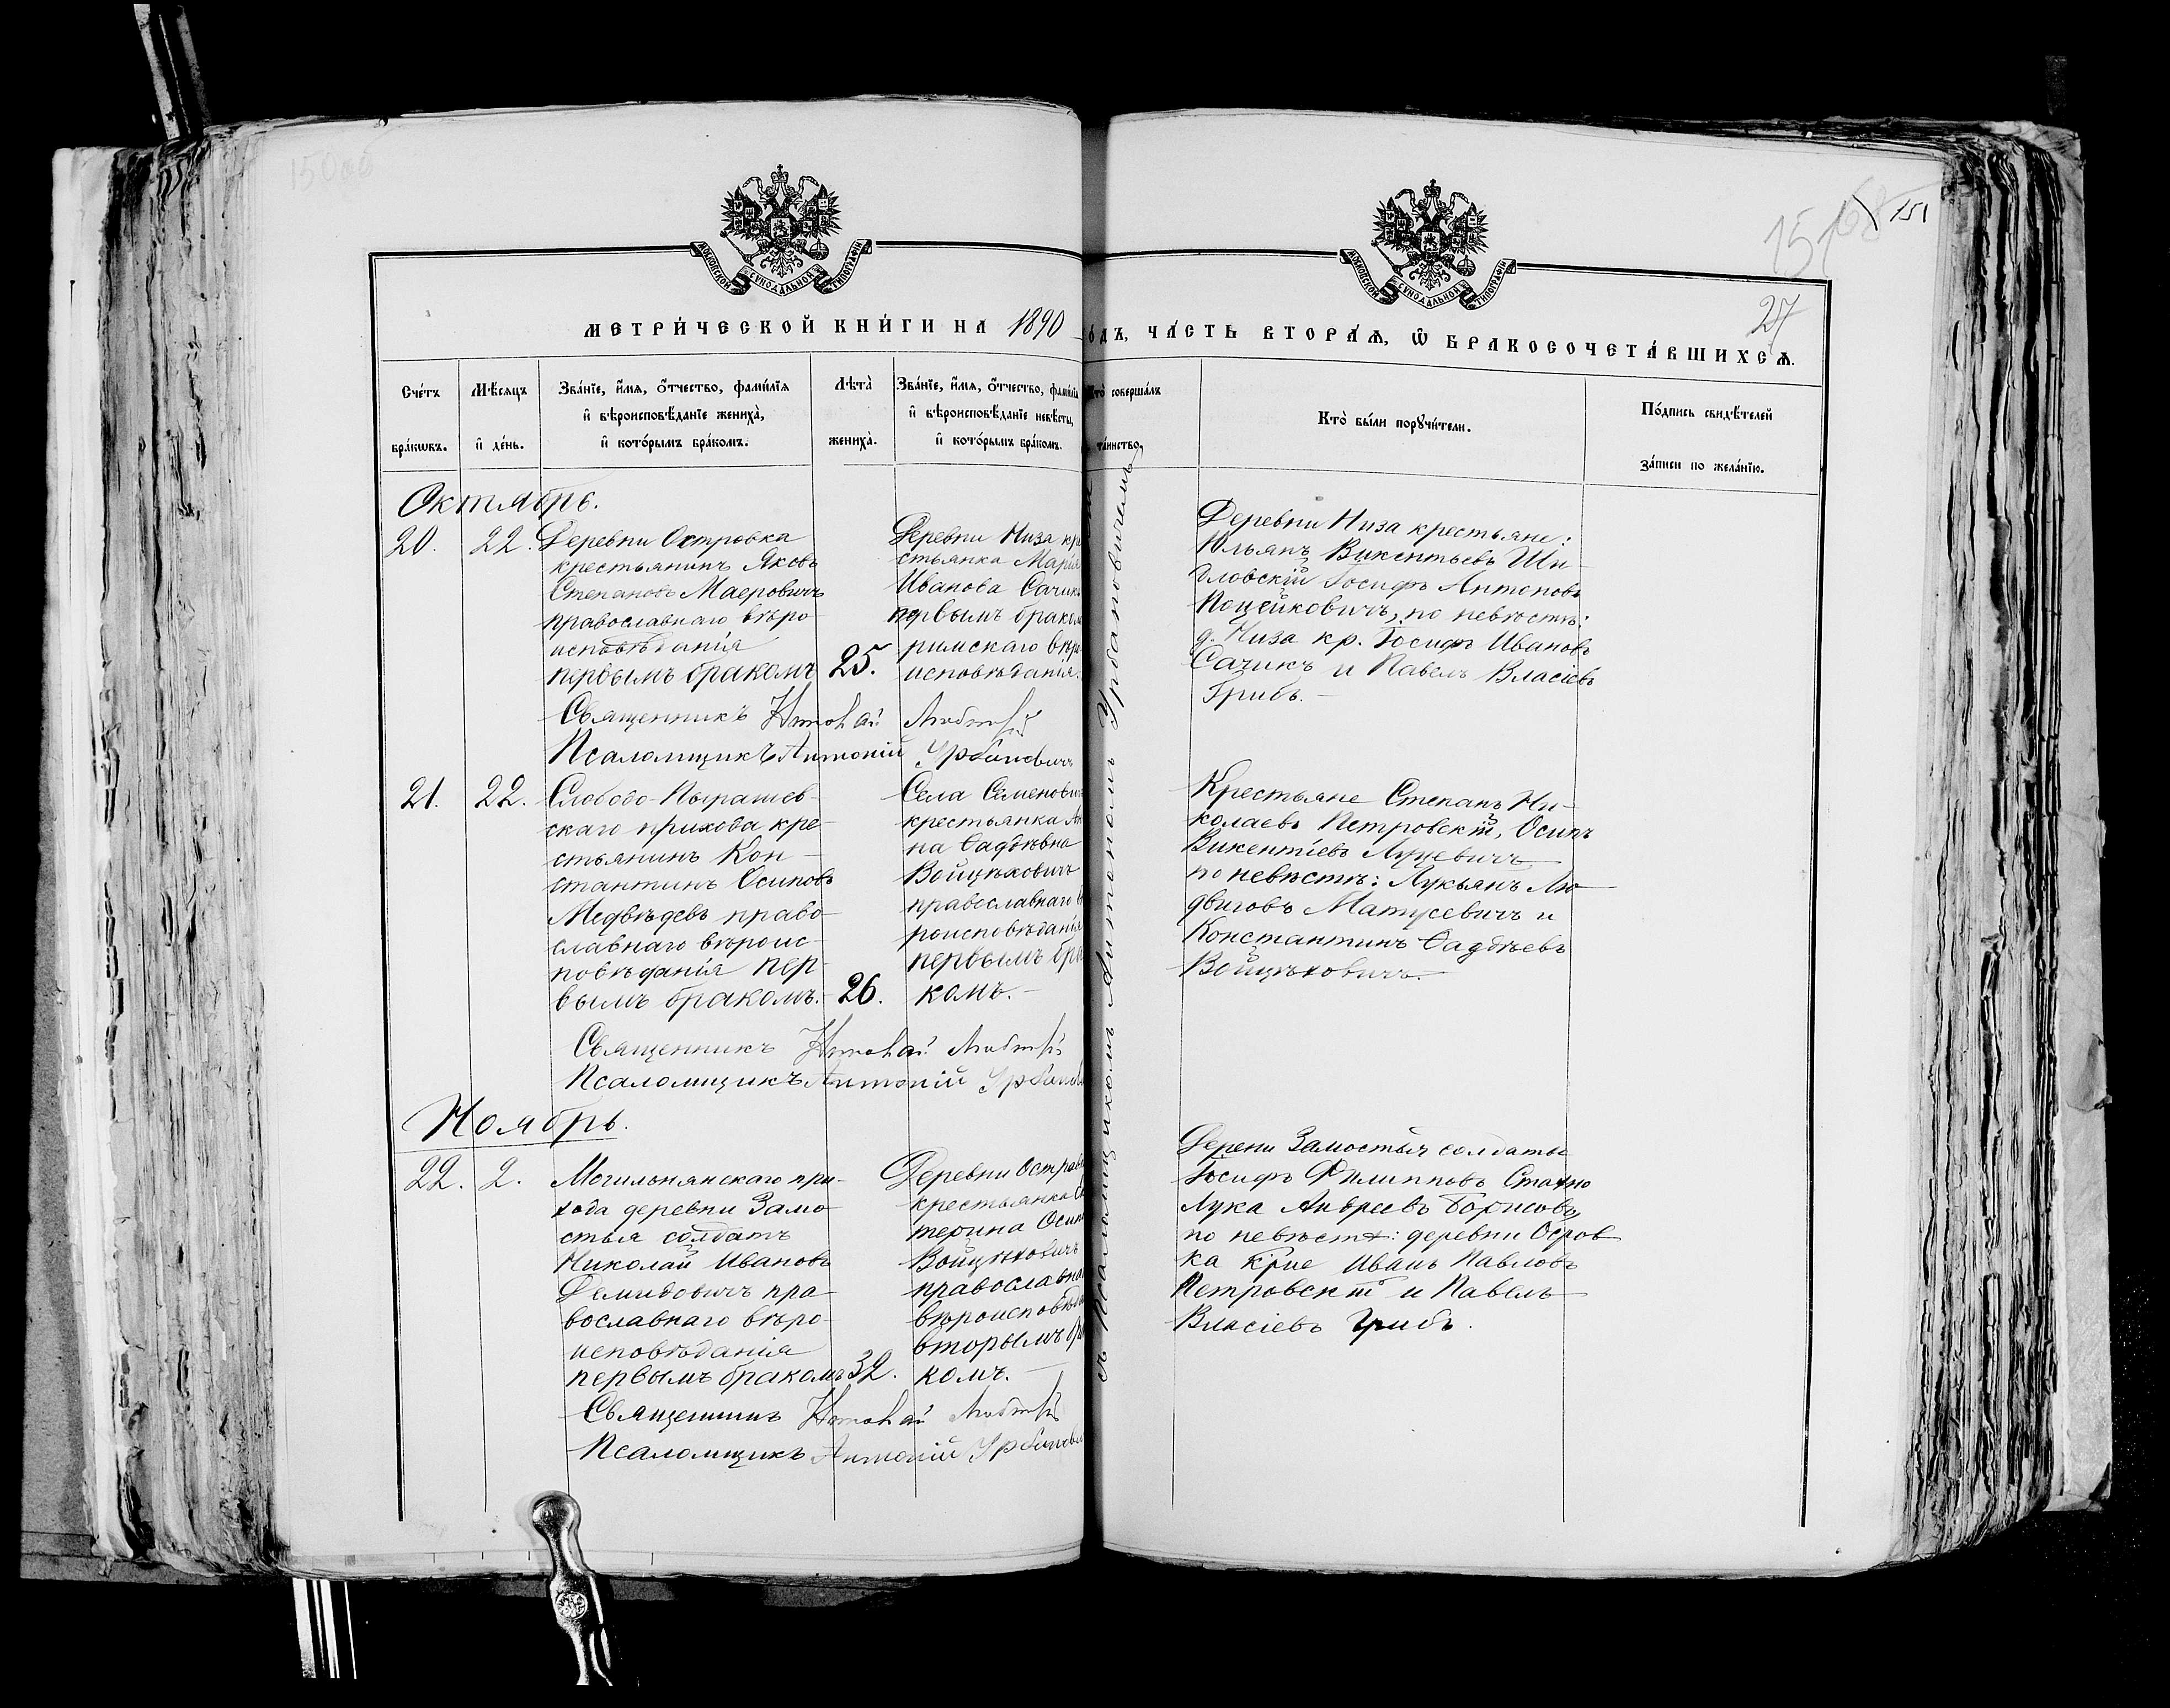 151
27
МОСКОВСКОЙ СѴНОДАЛЬНОЙ ТИПОГРАФІИ
МОСКОВСКОЙ СѴНОДАЛЬНОЙ ТИПОГРАФІИ
МЕТРИ́ЧЕСКОЙ КНИ́ГИ НА 1890 ГОДЪ, ЧА́СТЬ ВТОРА́Ѧ, Ѽ БРАКОСОЧЕТА́ВШИХСѦ.
Сче́тъ бра́кѡвъ.
Мѣ́сѧцъ и҆ де́нь.
Зва́нїе, и҆́мѧ, ѻ҆́тчество, фами́лїѧ
и҆ вѣроисповѣ́данїе жениха̀,
и҆ кото́рымъ бра́комъ.
Лѣ́та̀ жениха̀.
Зва́нїе, и҆́мѧ, ѻ҆́тчество, фами́лїѧ
и҆ вѣроисповѣ́данїе невѣ́сты,
и҆ кото́рымъ бра́комъ.
Кто̀ соверша́лъ
та́инство,
Кто̀ бы́ли порꙋчи́тели.
По́дпись свидѣ́телей
за́писи по жела́нїю.
Октябрь.
20. 22.
Деревни Островка
крестьянинъ Яковъ
Степановъ Маеровичъ
православнаго вѣро
исповѣданія
первымъ бракомъ
25.
Деревни Низа кр
стьянка Марія
Иванова Сачик
первымъ браком
римскаго вѣр
исповѣданія.
Деревни Низа крестьяне:
Юльянъ Викентьевъ Ши-
гловскій Іосифъ Антоновъ
Поцейковичъ, по невѣстѣ:
д. Низа кр. Іосифъ Ивановъ
Сачикъ и Павелъ Власіевъ
Грибъ. —
Священникъ Николай
Псаломщикъ Антоній Урбановичъ
21. 22.
Слободо-Пырашев-
скаго прихода кре-
стьянинъ Кон-
стантинъ Осиповъ
Медвѣдевъ право-
славнаго вѣроис-
повѣданія пер-
вымъ бракомъ.
26.
Села Семенович
крестьянка Ан
на Ѳадѣевна
Войцѣховичъ
православнаго в
роисповѣданія
первымъ бра
комъ. —
Крестьяне Степанъ Ни-
колаевъ Петровскій, Осипъ
Викентіевъ Луцевичъ
по невѣстѣ: Лукьянъ Лю-
двиговъ Матусевичъ и
Константинъ Ѳадѣевъ
Войцѣховичъ. —
Священникъ Николай
Псаломщикъ Антоній Урбанов
Ноябрь.
22. 2.
Могильнянскаго при-
хода деревни Замо-
стья солдатъ
Николай Ивановъ
Демидовичъ пра-
вославнаго вѣро-
исповѣданія
первымъ бракомъ
32.
Деревни Островк
крестьянка
терина Осип
Войцѣховичъ
православна
вѣроисповѣда
вторымъ бра
комъ. —
Дерени Замостья солдаты
Іосифъ Филипповъ Стахно
Лука Андреевъ Борисовъ,
по невѣстѣ: деревни Остров
ка кр͠не Иванъ Павловъ
Петровскій и Павелъ
Власіевъ Грибъ.
Священникъ Николай
Псаломщикъ Антоній Урбанов
съ Псаломщикомъ Антоніемъ Урбановичемъ